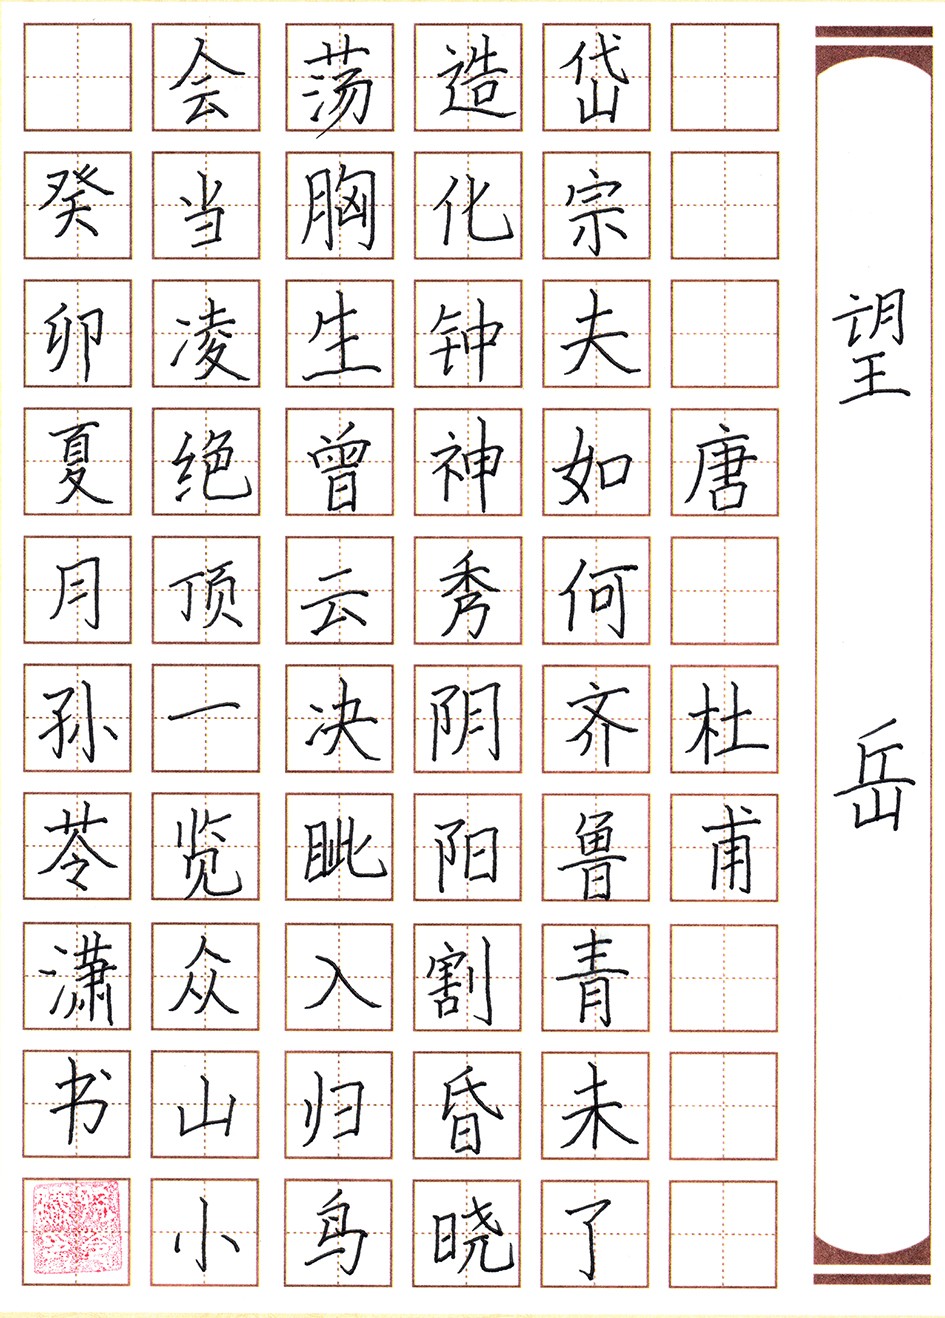 望岳
唐 杜甫
岱宗夫如何齐鲁青未了
造化钟神秀阴阳割昏晓
荡胸生曾云决眦入归鸟
会当凌绝顶一览众山小
癸卯夏月孙苓潇书